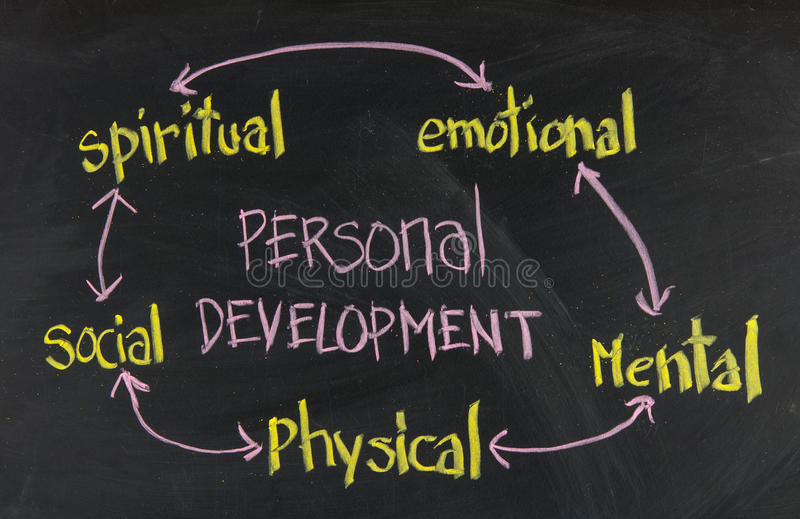 spiritual
emotional
PERSOnal
DEVELOPMENT
social
Mental
Physical
dreamstime